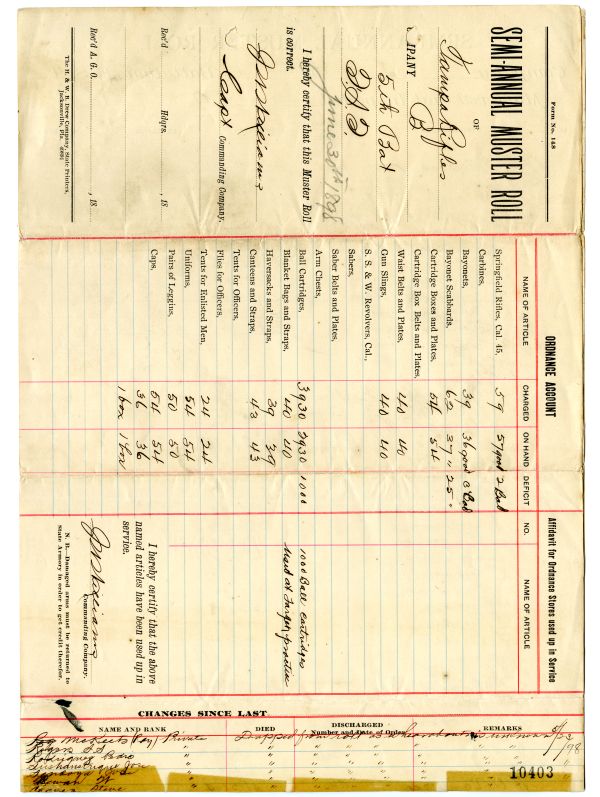 Form No. 148
SEMI-ANNUAL MUSTER ROLL
OF
Tampa Rifles
MPANY B
5th Bat
June 30th 1898
I hereby certify that this Muster Roll
is correct.
J W Williams
Capt Commanding Company.
Rec'd Hdqrs. , 18
Rec'd A. G. O. , 18
The H. & W. B. Drew Company, State Printers,
Jacksonville, Fla.
ORDNANCE ACCOUNT
NAME OF ARTICLE CHARGED ON HAND DEFICIT
Springfield Rifles, Cal. 45, 59 57 good 2 Bad
Carbines,
Bayonets, 39 36 good 3 Bad
Bayonet Scabbards, 62 37 " 25 "
Cartridge Boxes and Plates, 54 54
Cartridge Box Belts and Plates,
Waist Belts and Plates, 40 40
Gun Slings, 40 40
S. S. & W. Revolvers, Cal.,
Sabers,
Saber Belts and Plates,
Arm Chests,
Ball Cartridges, 3930 2930 1000
Blanket Bags and Straps, 40 40
Haversacks and Straps, 39 39
Canteens and Straps, 43 43
Tents for Officers,
Flies for Officers,
Tents for Enlisted Men, 24 24
Uniforms, 54 54
Pairs of Leggins, 50 50
Caps, 36 36
1 box 1 box
Affidavit for Ordnance Stores used up in Service
NO. NAME OF ARTICLE
1000 Ball Cartridges
Used at Target practice
I hereby certify that the above
named articles have been used up in
service.
J W Williams
Commanding Company.
N. B.—Damaged arms must be returned to
State Armory in order to get credit therefor.
CHANGES SINCE LAST
NAME AND RANK DIED DISCHARGED REMARKS
Number and Date of Order
Private Dropped from
Rodriguez
10403